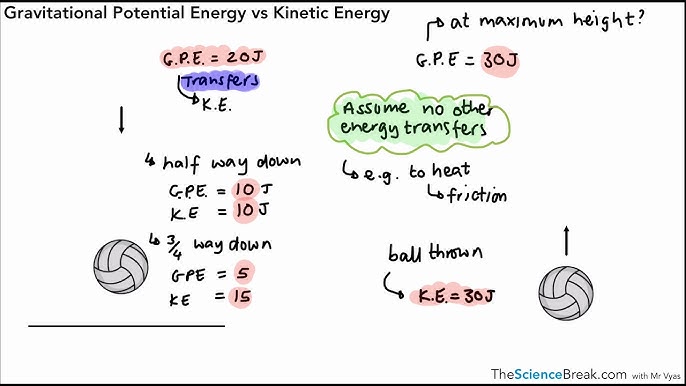 Gravitational Potential Energy vs Kinetic Energy
G.P.E. = 20J
Transfers
K.E.
half way down
G.P.E. = 10 J
K.E = 10 J
3/4 way down
GPE = 5
KE = 15
at maximum height?
G.P.E = 30J
Assume no other
energy transfers
e.g. to heat
friction
ball thrown
K.E. = 30J
TheScienceBreak.com with Mr Vyas